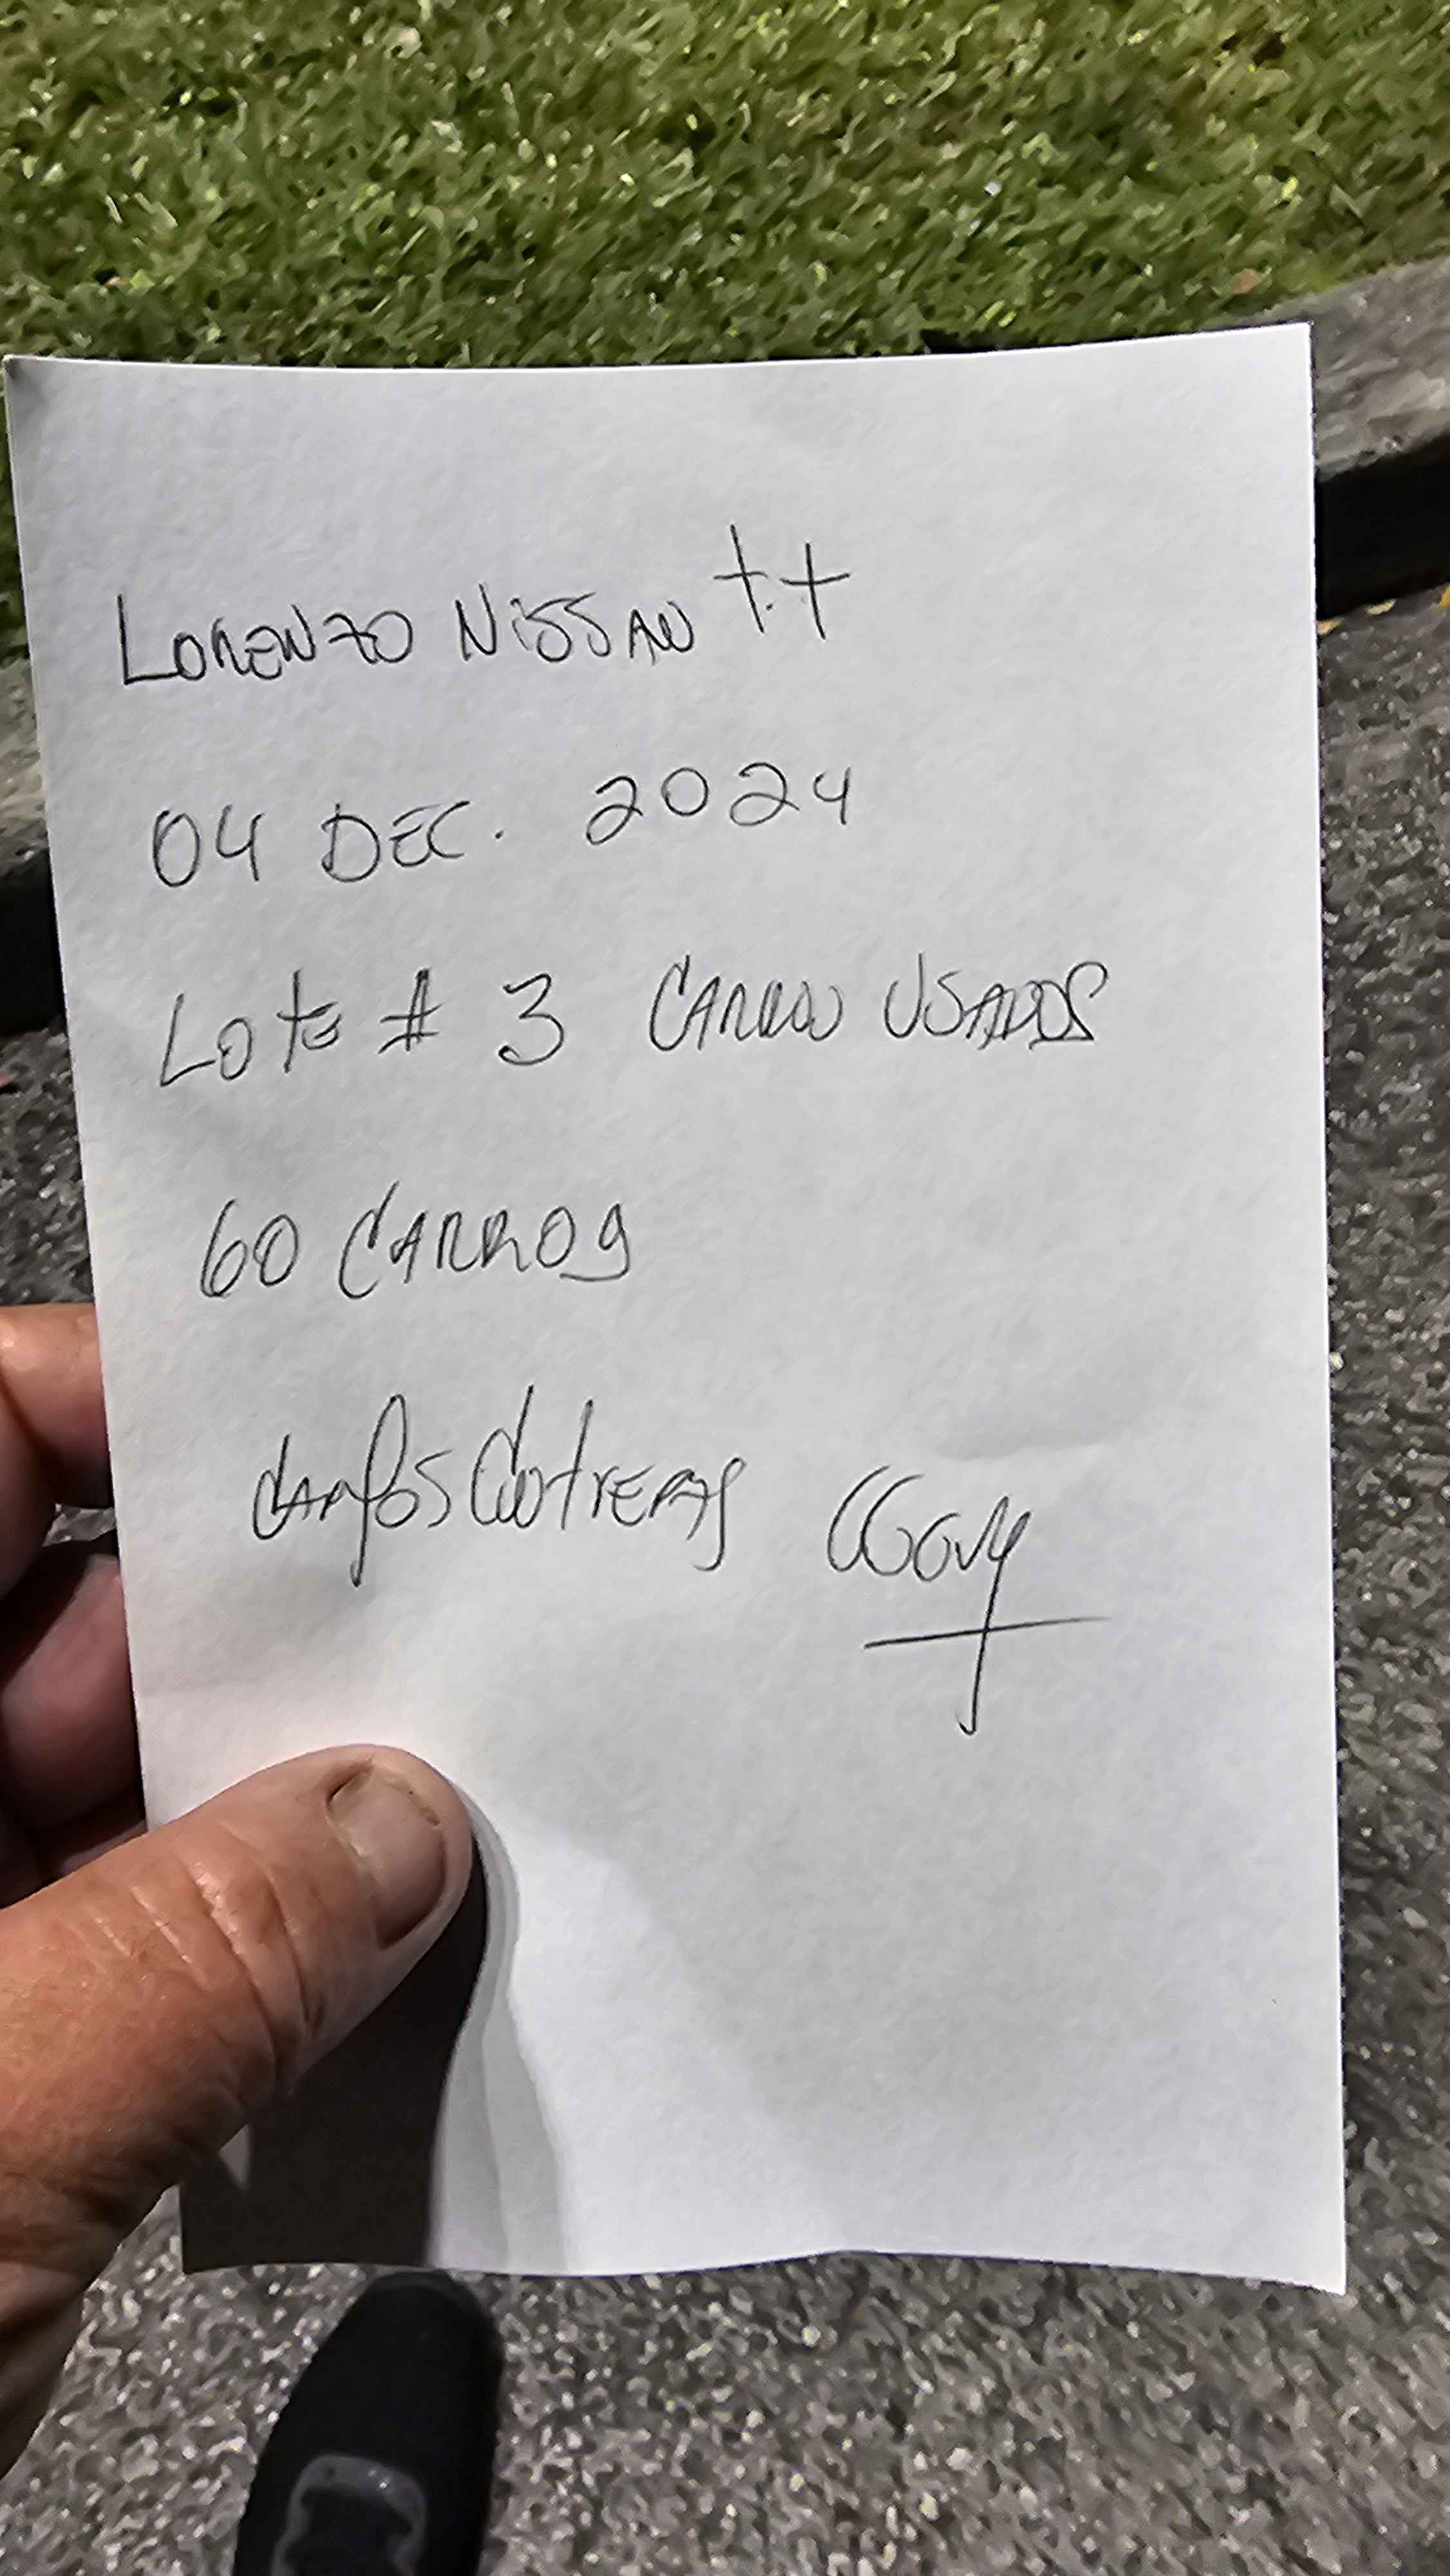 LORENZO NISSAN
04 DEC. 2024
Lote # 3 CARROS USADOS
60 CARROS
Contreras